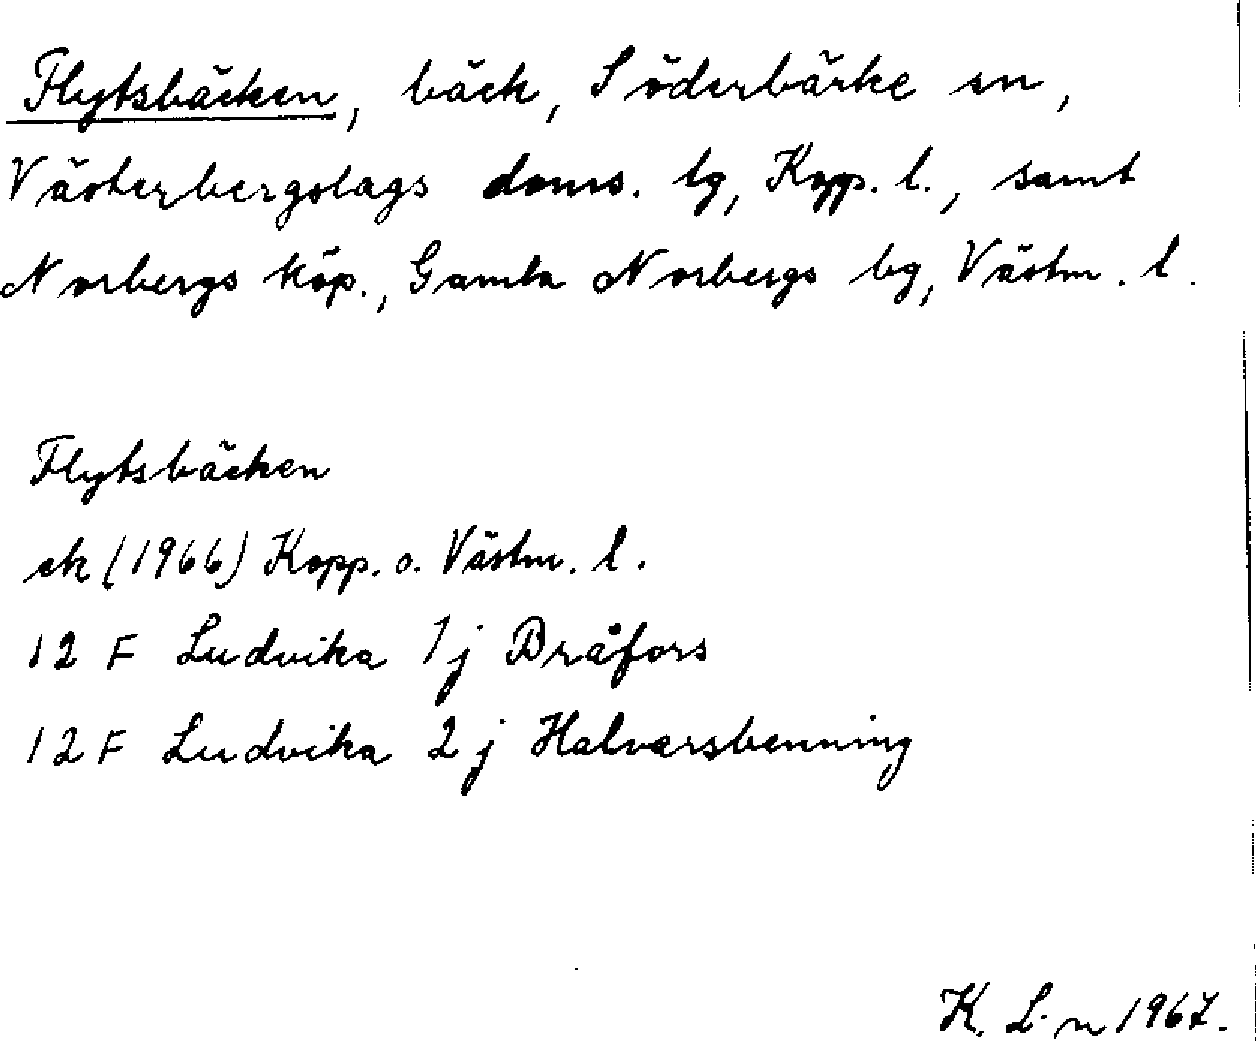 Flytsbäcken, bäck, Söderbärke sn,
Västerbergslags doms. lg, Kopp. l., samt
Norbergs köp., Gamla Norbergs bg, Västm. l.
Flytsbäcken
ek (1966) Kopp. o. Västm. l.
12 F Ludvika 1 j Bråfors
12 F Ludvika 2 j Halvarsbenning
K. L-n 1967.